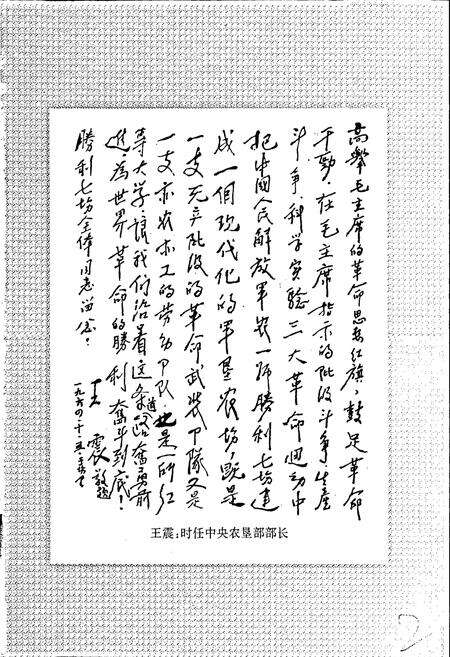 高举毛主席的革命思想红旗，鼓足革命
干劲．在毛主席指示的阶级斗争生产
斗争、科学实验三大革命运动中
把中国人民解放军农一师胜利七场建
成一個现代化的军垦农场，既是
一支无产阶级的革命武装部隊又是
一支亦农亦工的劳动部队．也是一所红
等大学．讓我们沿着这条道路奮勇前
進為世界革命的勝利奮斗到底！
勝利七场全体同志留念：
王震敬题
王震：时任中央农垦部部长